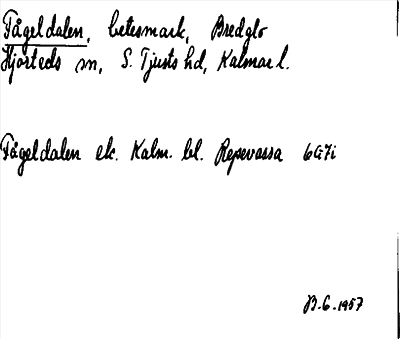 Fågeldalen, betesmark, Bredglo
Hjorteds sn, S. Tjusts hd, Kalmar l.
Fågeldalen ek. Kalm. bl. Repevassa 6G7i
B.G. 1957